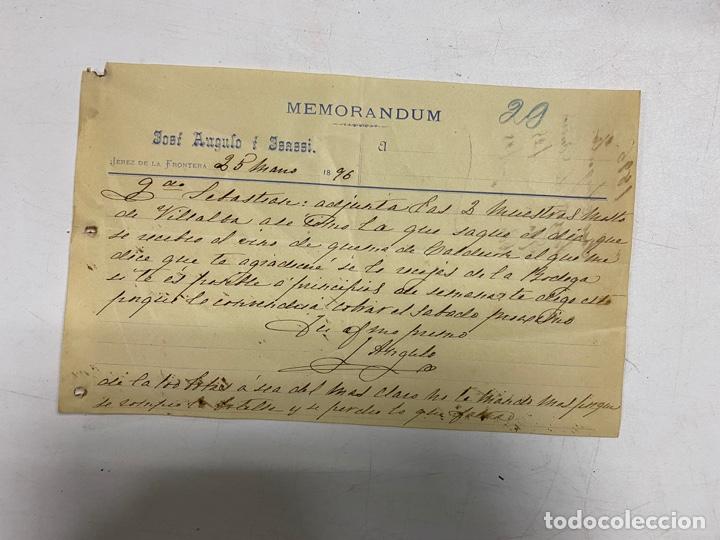 MEMORANDUM
20
José Angulo é Isassi.
á
JEREZ DE LA FRONTERA 25 Marzo 1896
Qdo Sebastian: adjunta las 2 muestras
de Villalba asi como la que saque el dia que
se recibió el vino de el que me
dice que te agradeceré se lo recojas de la Bodega
si te es posible á principios de semana te digo esto
porque le convendria cobrar el Sabado proximo
Tu afmo primo
J Angulo
de la 100 botas ó sea del mas claro no te mando mas porque
se rompio la botella y se perdio lo que
todocoleccion
todocoleccion.net